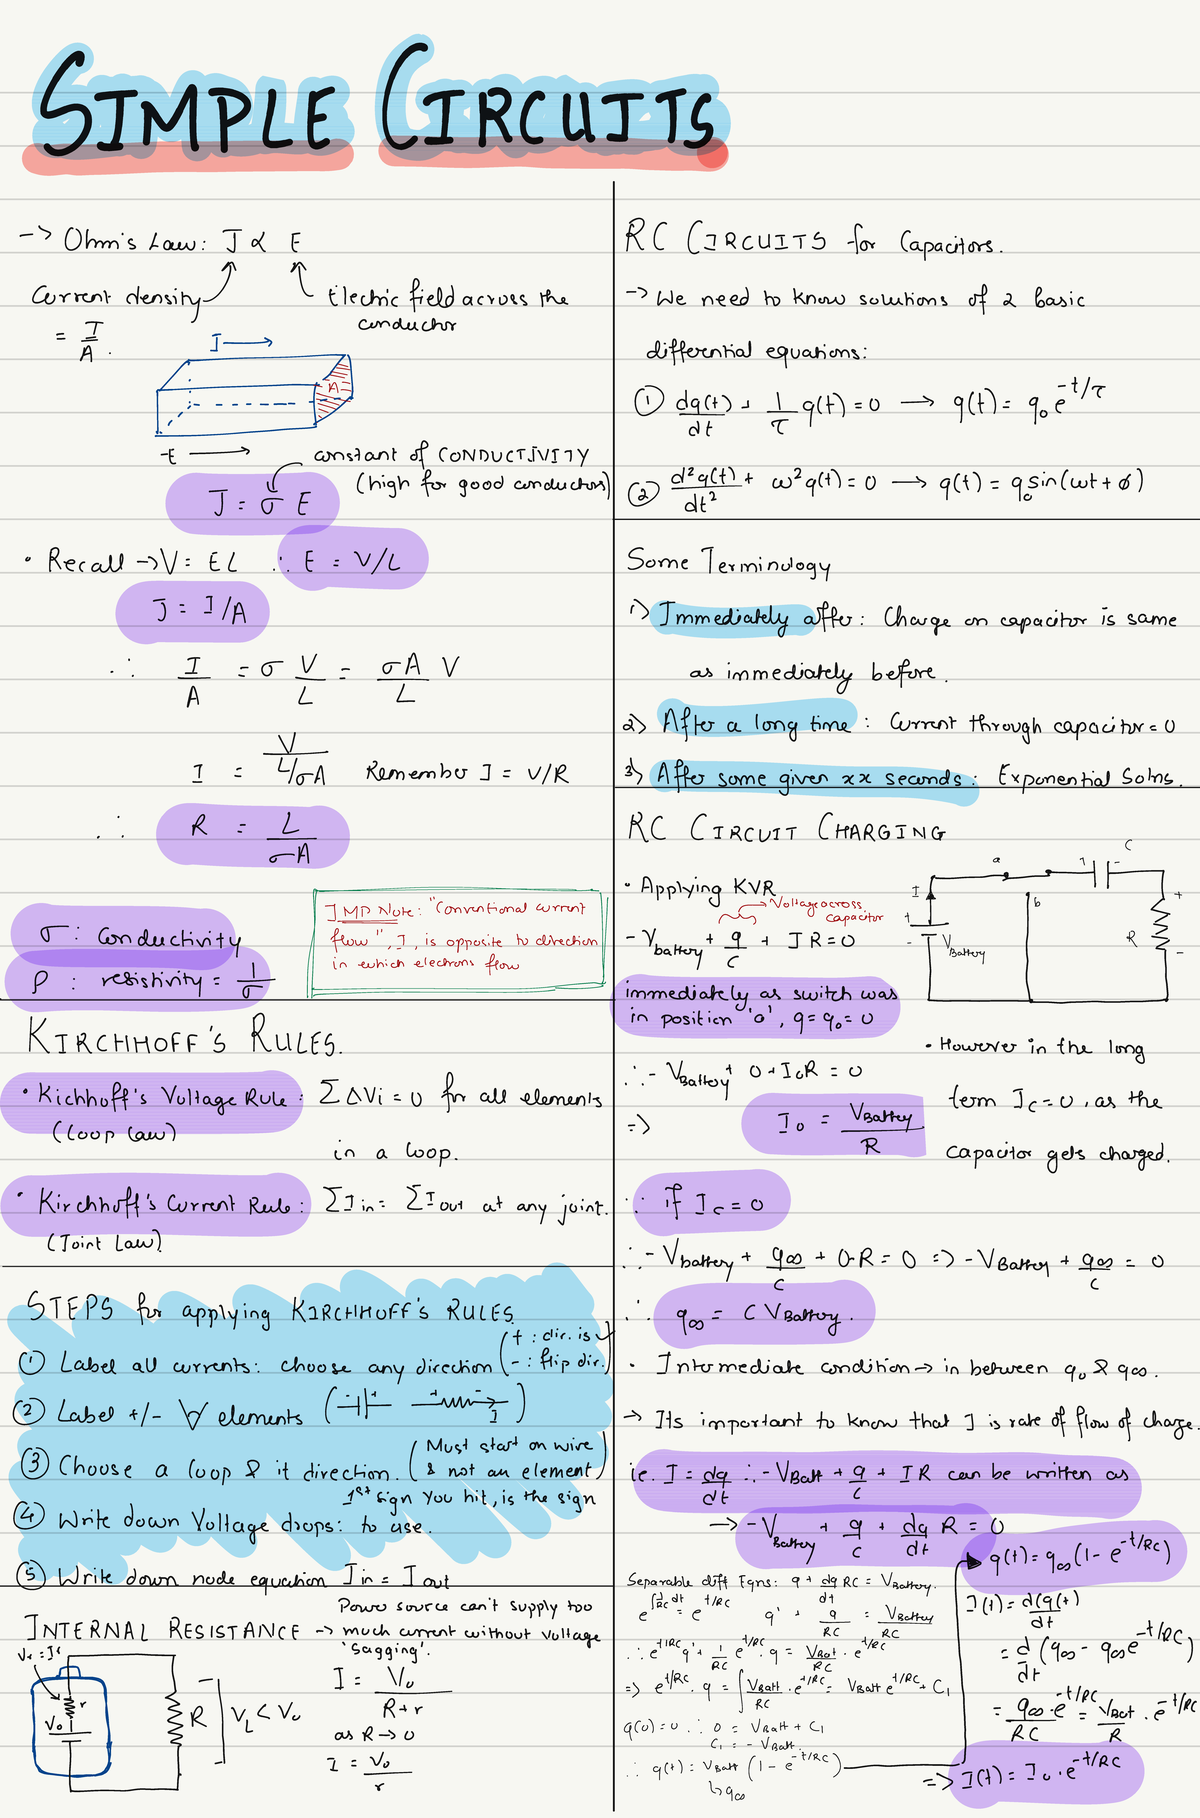 SIMPLE CIRCUITS
-> Ohm's Law: J ∝ E
Current density
= I/A.
Electric field across the
conductor
I →
A
E →
constant of CONDUCTIVITY
(high for good conductors)
J = σ E
• Recall -> V = EL ∴ E = V/L
J = I/A
∴ I/A = σ V/L = σA/L V
I = V/(L/σA) Remember I = V/R
∴ R = L/σA
σ : conductivity
ρ : resistivity = 1/σ
IMP Note: "Conventional current
flow", I, is opposite to direction
in which electrons flow
KIRCHHOFF'S RULES.
• Kichhoff's Voltage Rule: Σ ΔVi = 0 for all elements
(Loop Law) in a loop.
• Kirchhoff's Current Rule: ΣI in = ΣI out at any joint.
(Joint Law)
STEPS for applying KIRCHHOFF'S RULES
① Label all currents: choose any direction (+ : dir. is ✓
- : flip dir.)
② Label +/- ∀ elements (- + + - I)
③ Choose a loop & it direction. (Must start on wire
& not an element)
1st sign you hit, is the sign
④ Write down Voltage drops: to use.
⑤ Write down node equation I in = I out
INTERNAL RESISTANCE -> Power source can't supply too
much current without voltage
'sagging'.
Vr = Ir
r
V₀
R
V_L < V₀
I = V₀/(R+r)
as R → 0
I = V₀/r
RC CIRCUITS for Capacitors.
-> We need to know solutions of 2 basic
differential equations:
① dq(t)/dt + 1/τ q(t) = 0 → q(t) = q₀ e^(-t/τ)
② d²q(t)/dt² + ω² q(t) = 0 → q(t) = q₀ sin(ωt + ϕ)
Some Terminology
1) Immediately after: Charge on capacitor is same
as immediately before.
2) After a long time: Current through capacitor = 0
3) After some given xx seconds: Exponential Solns.
RC CIRCUIT CHARGING
• Applying KVR
→ Voltage across
capacitor
- V battery + q/c + IR = 0
I
a
b
+ -
C
+
-
V Battery
+
R
-
immediately as switch was
in position 'a', q = q₀ = 0
∴ - V Battery + 0 + I₀R = 0
=> I₀ = V Battery/R
• However in the long
term I c = 0, as the
capacitor gets charged.
∴ if I c = 0
∴ - V battery + q∞/c + 0·R = 0 => - V Battery + q∞/c = 0
∴ q∞ = C V Battery.
• Intermediate condition → in between q₀ & q∞.
→ Its important to know that I is rate of flow of charge.
i.e. I = dq/dt ∴ - V Batt + q/c + IR can be written as
→ - V Battery + q/c + dq/dt R = 0
Separable diff Eqns: q + dq/dt RC = V Battery.
e^(∫1/RC dt) = e^(t/RC) q' + q/RC = V Battery/RC
∴ e^(t/RC) q' + 1/RC e^(t/RC) · q = V Bat/RC · e^(t/RC)
=> e^(t/RC) · q = ∫ V Batt/RC · e^(t/RC) = V Batt e^(t/RC) + C₁
q(0) = 0 ∴ 0 = V Batt + C₁
C₁ = - V Batt.
∴ q(t) = V Batt (1 - e^(-t/RC))
↳ q∞
q(t) = q∞ (1 - e^(-t/RC))
I(t) = d(q(t)/dt
= d/dt (q∞ - q∞ e^(-t/RC))
= q∞/RC · e^(-t/RC) = V Bat/R · e^(-t/RC)
=> I(t) = I₀ · e^(-t/RC)